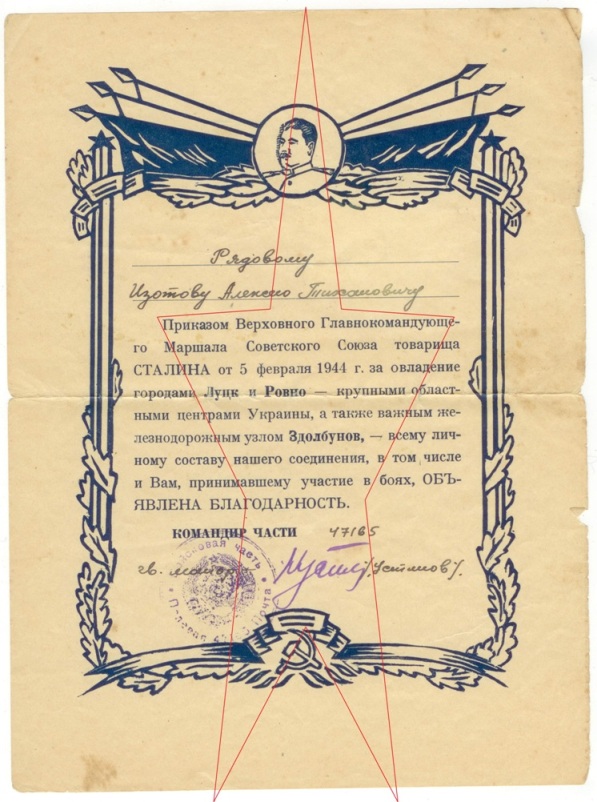 Рядовому
Изотову Алексею Тихоновичу
Приказом Верховного Главнокомандующе-
го Маршала Советского Союза товарища
СТАЛИНА от 5 февраля 1944 г. за овладение
городами Луцк и Ровно — крупными област-
ными центрами Украины, а также важным же-
лезнодорожным узлом Здолбунов, — всему лич-
ному составу нашего соединения, в том числе
и Вам, принимавшему участие в боях, ОБЪ-
ЯВЛЕНА БЛАГОДАРНОСТЬ.
КОМАНДИР ЧАСТИ 47165
гв. майор /Устинов/.
часть
Полевая Почта